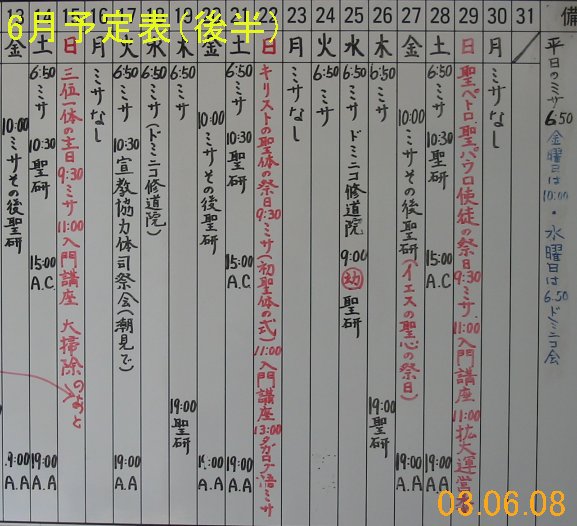 6月予定表(後半)
13 14 15 16 17 18 19 20 21 22 23 24 25 26 27 28 29 30 31 備
金 土 日 月 火 水 木 金 土 日 月 火 水 木 金 土 日 月
10:00 ミサその後聖研 19:00 A.A
6:50 ミサ 10:30 聖研 15:00 A.C 19:00 A.A
三位一体の主日 9:30 ミサ 11:00 入門講座 大掃除のあと
ミサなし
6:50 ミサ 10:30 宣教協力体司祭会(潮見で) 19:00 A.A
6:50 ミサ(ドミニコ修道院)
6:50 ミサ 19:00 聖研
10:00 ミサその後聖研 19:00 A.A
6:50 ミサ 10:30 聖研 15:00 A.C 19:00 A.A
キリストの聖体の祭日 9:30 ミサ(初聖体の式) 11:00 入門講座 13:00 タガログ語ミサ
ミサなし
6:50 ミサ
6:50 ミサ ドミニコ修道院 9:00 幼 聖研
6:50 ミサ 19:00 聖研
10:00 ミサその後聖研(イエスの聖心の祭日) 19:00 A.A
6:50 ミサ 10:30 聖研 15:00 A.C 19:00 A.A
聖ペトロ聖パウロ使徒の祭日 9:30 ミサ 11:00 入門講座 11:00 拡大運営
ミサなし
平日のミサ 6:50
金曜日は 10:00・水曜日は 6.50 ドミニコ会
03.06.08